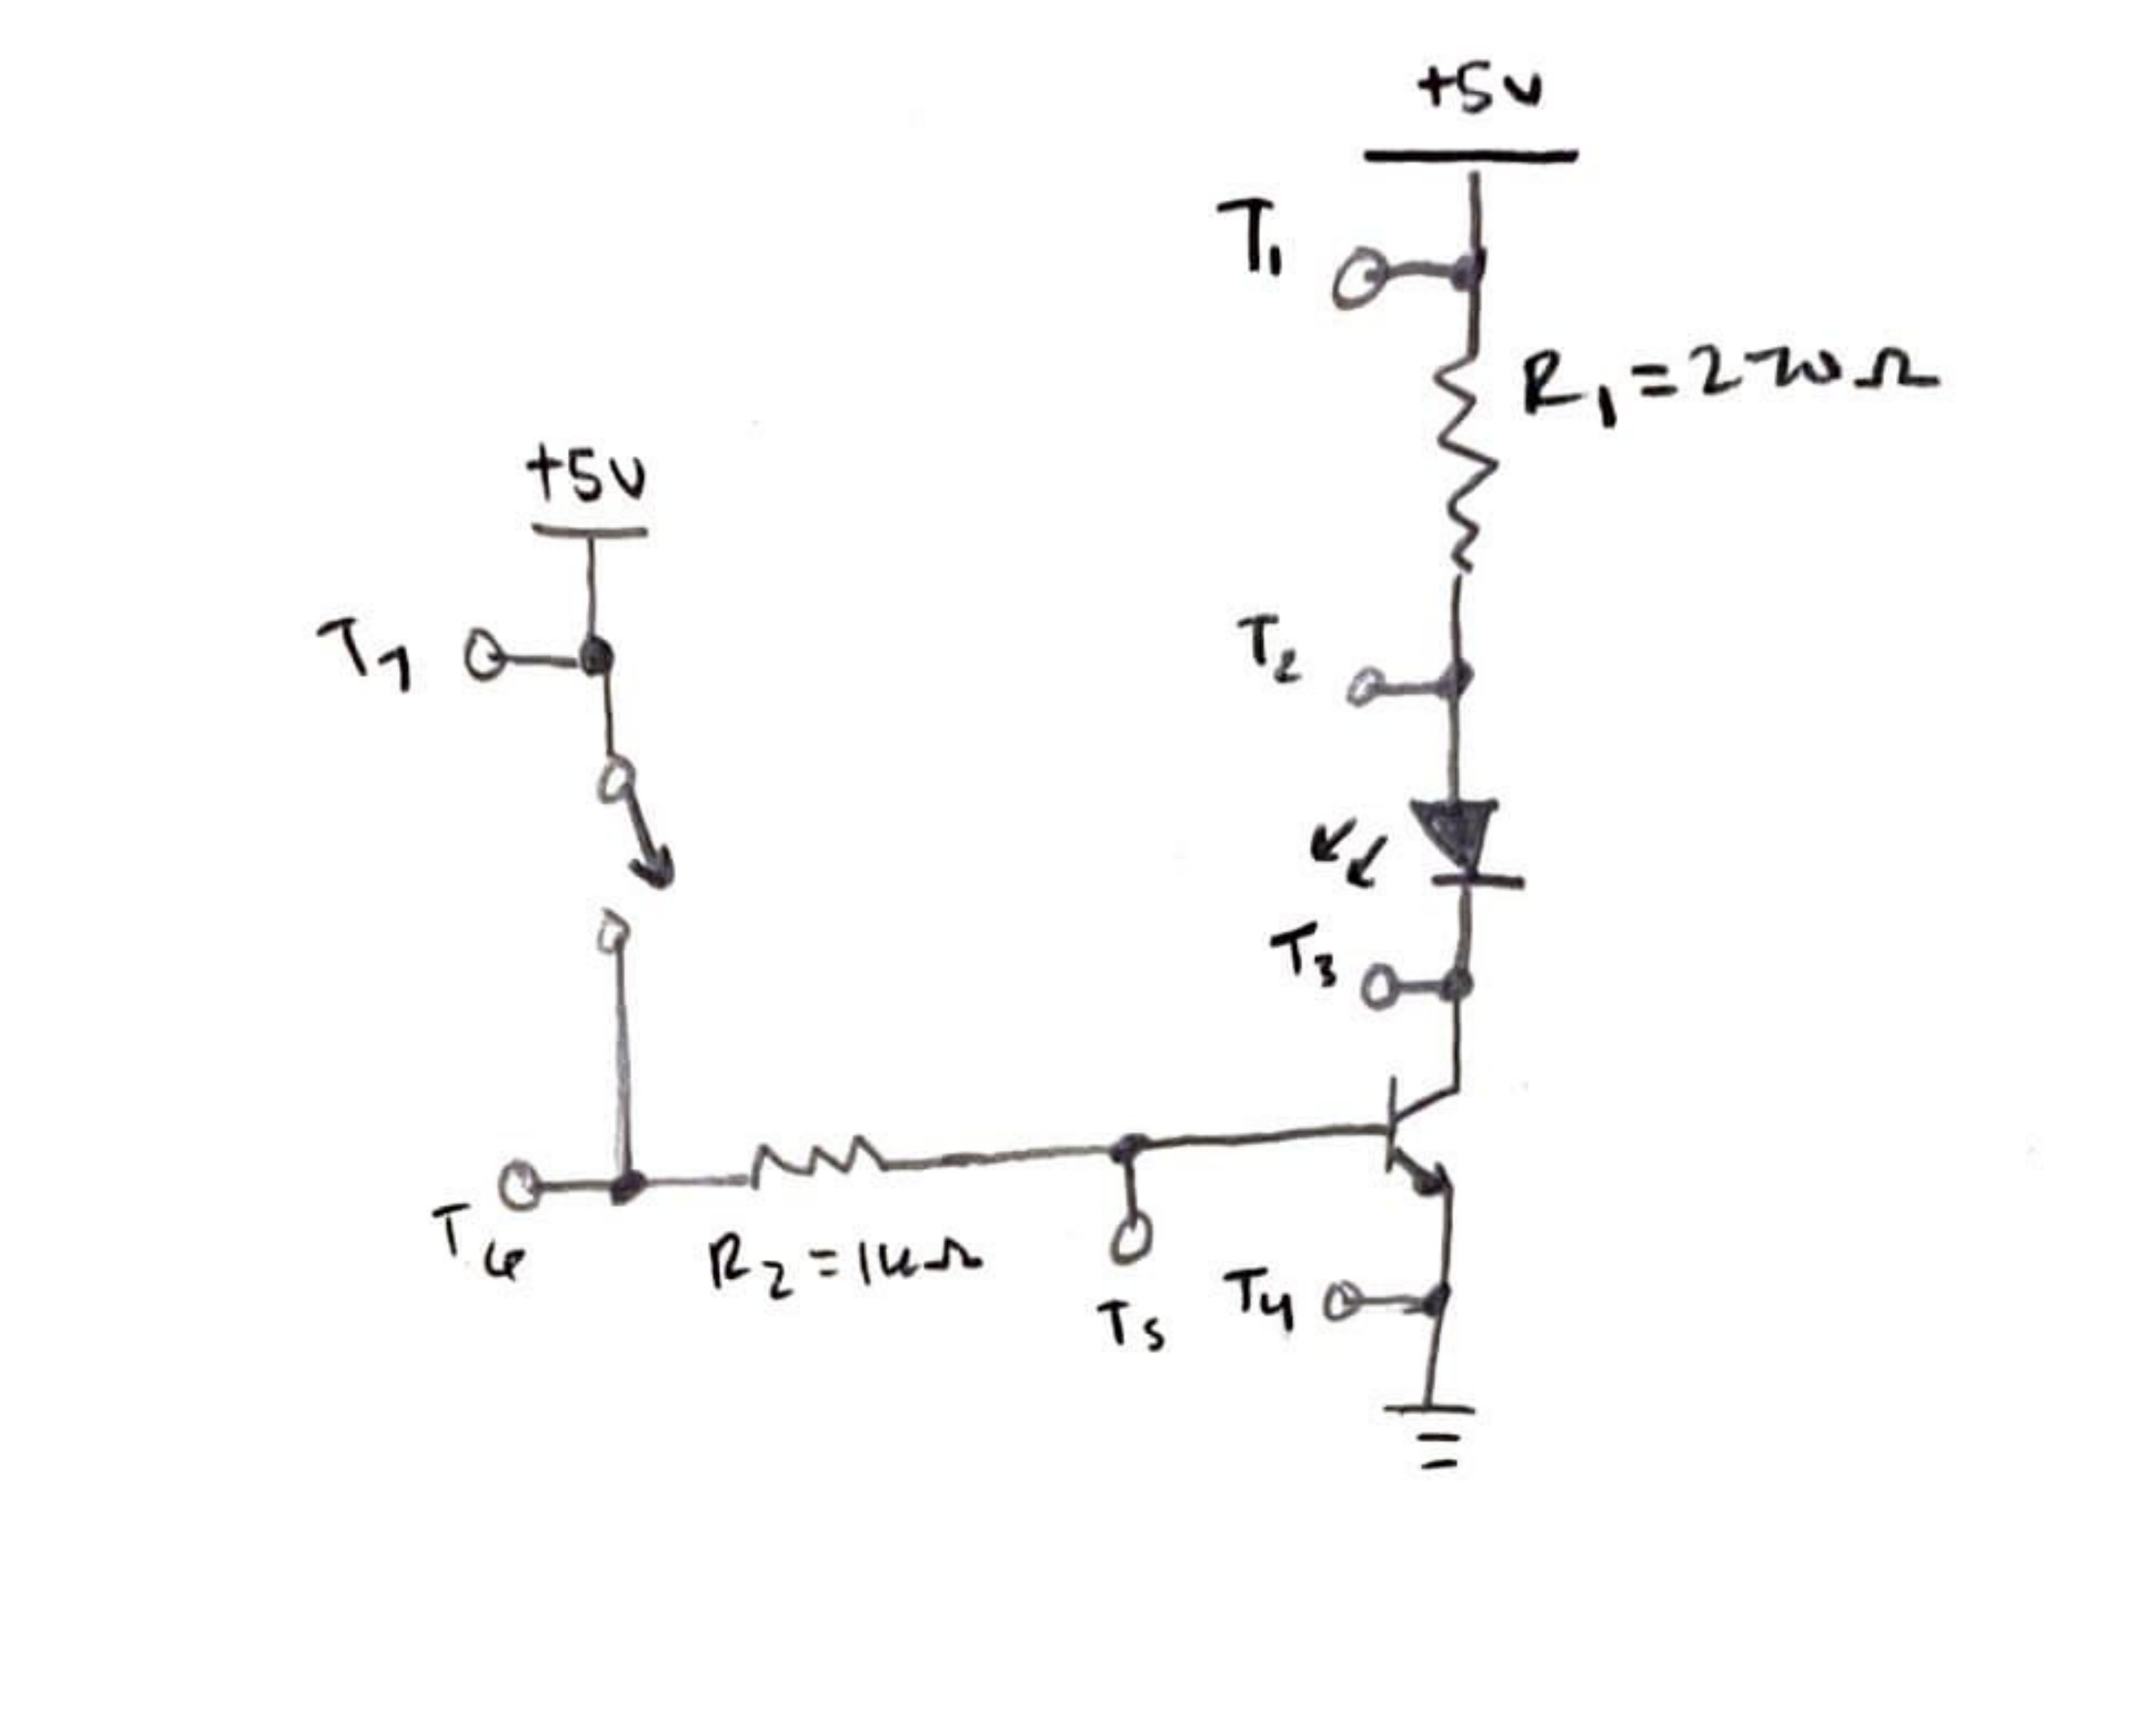 +5v
T1
R1=270Ω
+5v
T7
T2
T3
T6
R2=1kΩ
T5
T4